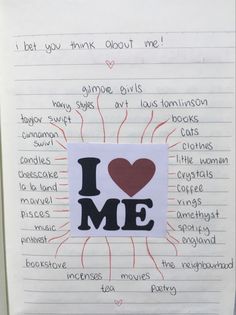 i bet you think about me!
gilmore girls
harry styles art louis tomlinson
taylor swift books
cinnamon swirl cats
clothes
candles little women
cheesecake crystals
la la land coffee
marvel rings
pisces amethyst
music spotify
pinterest england
I ME
bookstore the neighbourhood
incenses movies
tea poetry